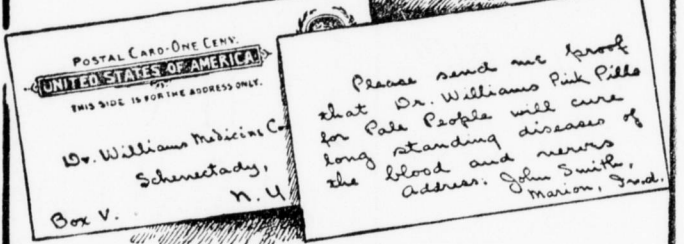 POSTAL CARD-ONE CENT.
UNITED STATES OF AMERICA
THIS SIDE IS FOR THE ADDRESS ONLY.
Dr. Williams Medicine Co
Schenectady,
Box V. N. Y
Please send me proof
that Dr. Williams Pink Pills
for Pale People will cure
long standing diseases of
the blood and nerves
Address: John Smith,
Marion, Ind.